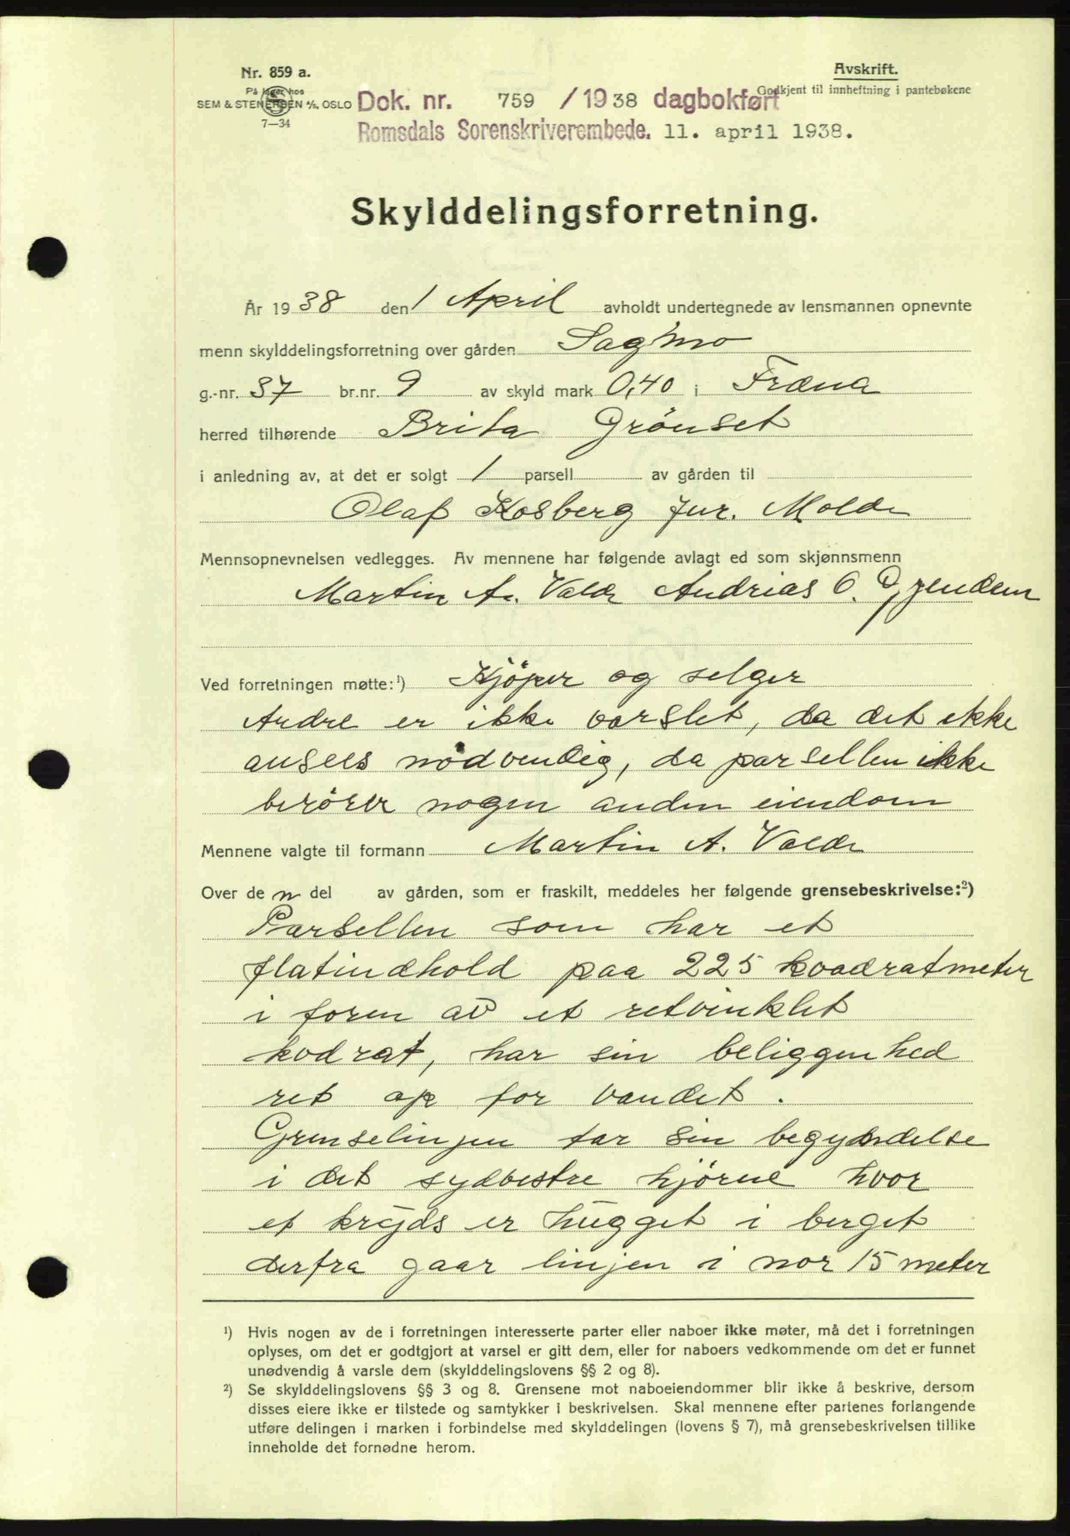 Nr. 859 a.
På lager hos
SEM & STENERSEN A/S, OSLO
7—34
Avskrift.
Godkjent til innheftning i pantebøkene
Dok. nr. 759 / 1938 dagbokført
Romsdals Sorenskriverembede. 11. april 1938.
Skylddelingsforretning.
År 1938 den 1 April avholdt undertegnede av lensmannen opnevnte
menn skylddelingsforretning over gården Sagmo
g.-nr. 37 br.nr. 9 av skyld mark 0,40 i Fræna
herred tilhørende Brita Grönset
i anledning av, at det er solgt 1 parsell av gården til
Olaf Kosberg jur. Molde
Mennsopnevnelsen vedlegges. Av mennene har følgende avlagt ed som skjønnsmenn
Martin A. Valde Andrias O. Gjendem
Ved forretningen møtte:¹) Kjöper og selger
Andre er ikke varslet, da det ikke
ansees nödvendig, da parsellen ikke
berörer nogen anden eiendom
Mennene valgte til formann Martin A. Valde
Over de n del av gården, som er fraskilt, meddeles her følgende grensebeskrivelse:²)
Parsellen som har et
flatindhold paa 225 kvadratmeter
i form av et retvinklet
kvdrat, har sin beliggenhed
ret op for vandet.
Grenselinjen tar sin begyndelse
i det sydvestre hjörne hvor
et kryds er hugget i berget
derfra gaar linjen i nor 15 meter
¹) Hvis nogen av de i forretningen interesserte parter eller naboer ikke møter, må det i forretningen
oplyses, om det er godtgjort at varsel er gitt dem, eller for naboers vedkommende om det er funnet
unødvendig å varsle dem (skylddelingslovens §§ 2 og 8).
²) Se skylddelingslovens §§ 3 og 8. Grensene mot naboeiendommer blir ikke å beskrive, dersom
disses eiere ikke er tilstede og samtykker i beskrivelsen. Skal mennene efter partenes forlangende
utføre delingen i marken i forbindelse med skylddelingen (lovens § 7), må grensebeskrivelsen tillike
inneholde det fornødne herom.